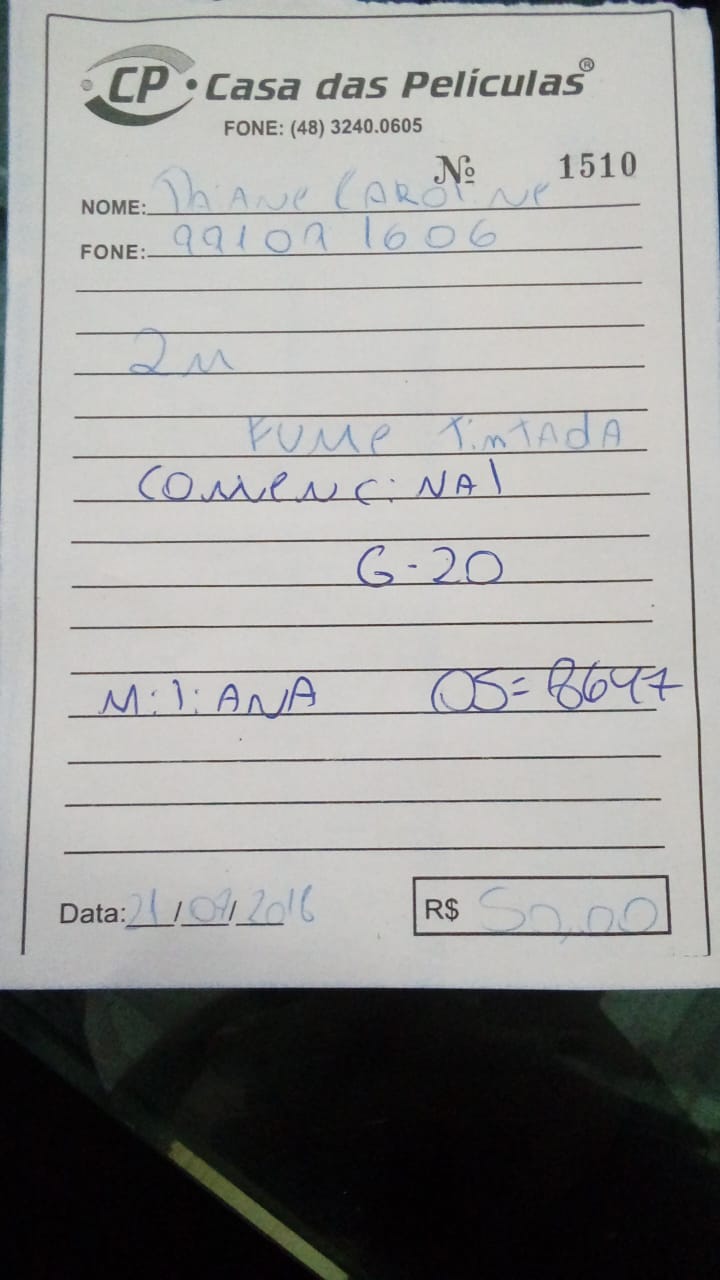 CP • Casa das Películas®
FONE: (48) 3240.0605
Nº 1510
NOME: ThiANe CAROLiNe
FONE: 991071606
2M
FUMe TiNTAdA
CONVeNCiNAl
G-20
MiliANA OS=8647
Data: 21/07/2016 R$ 50,00